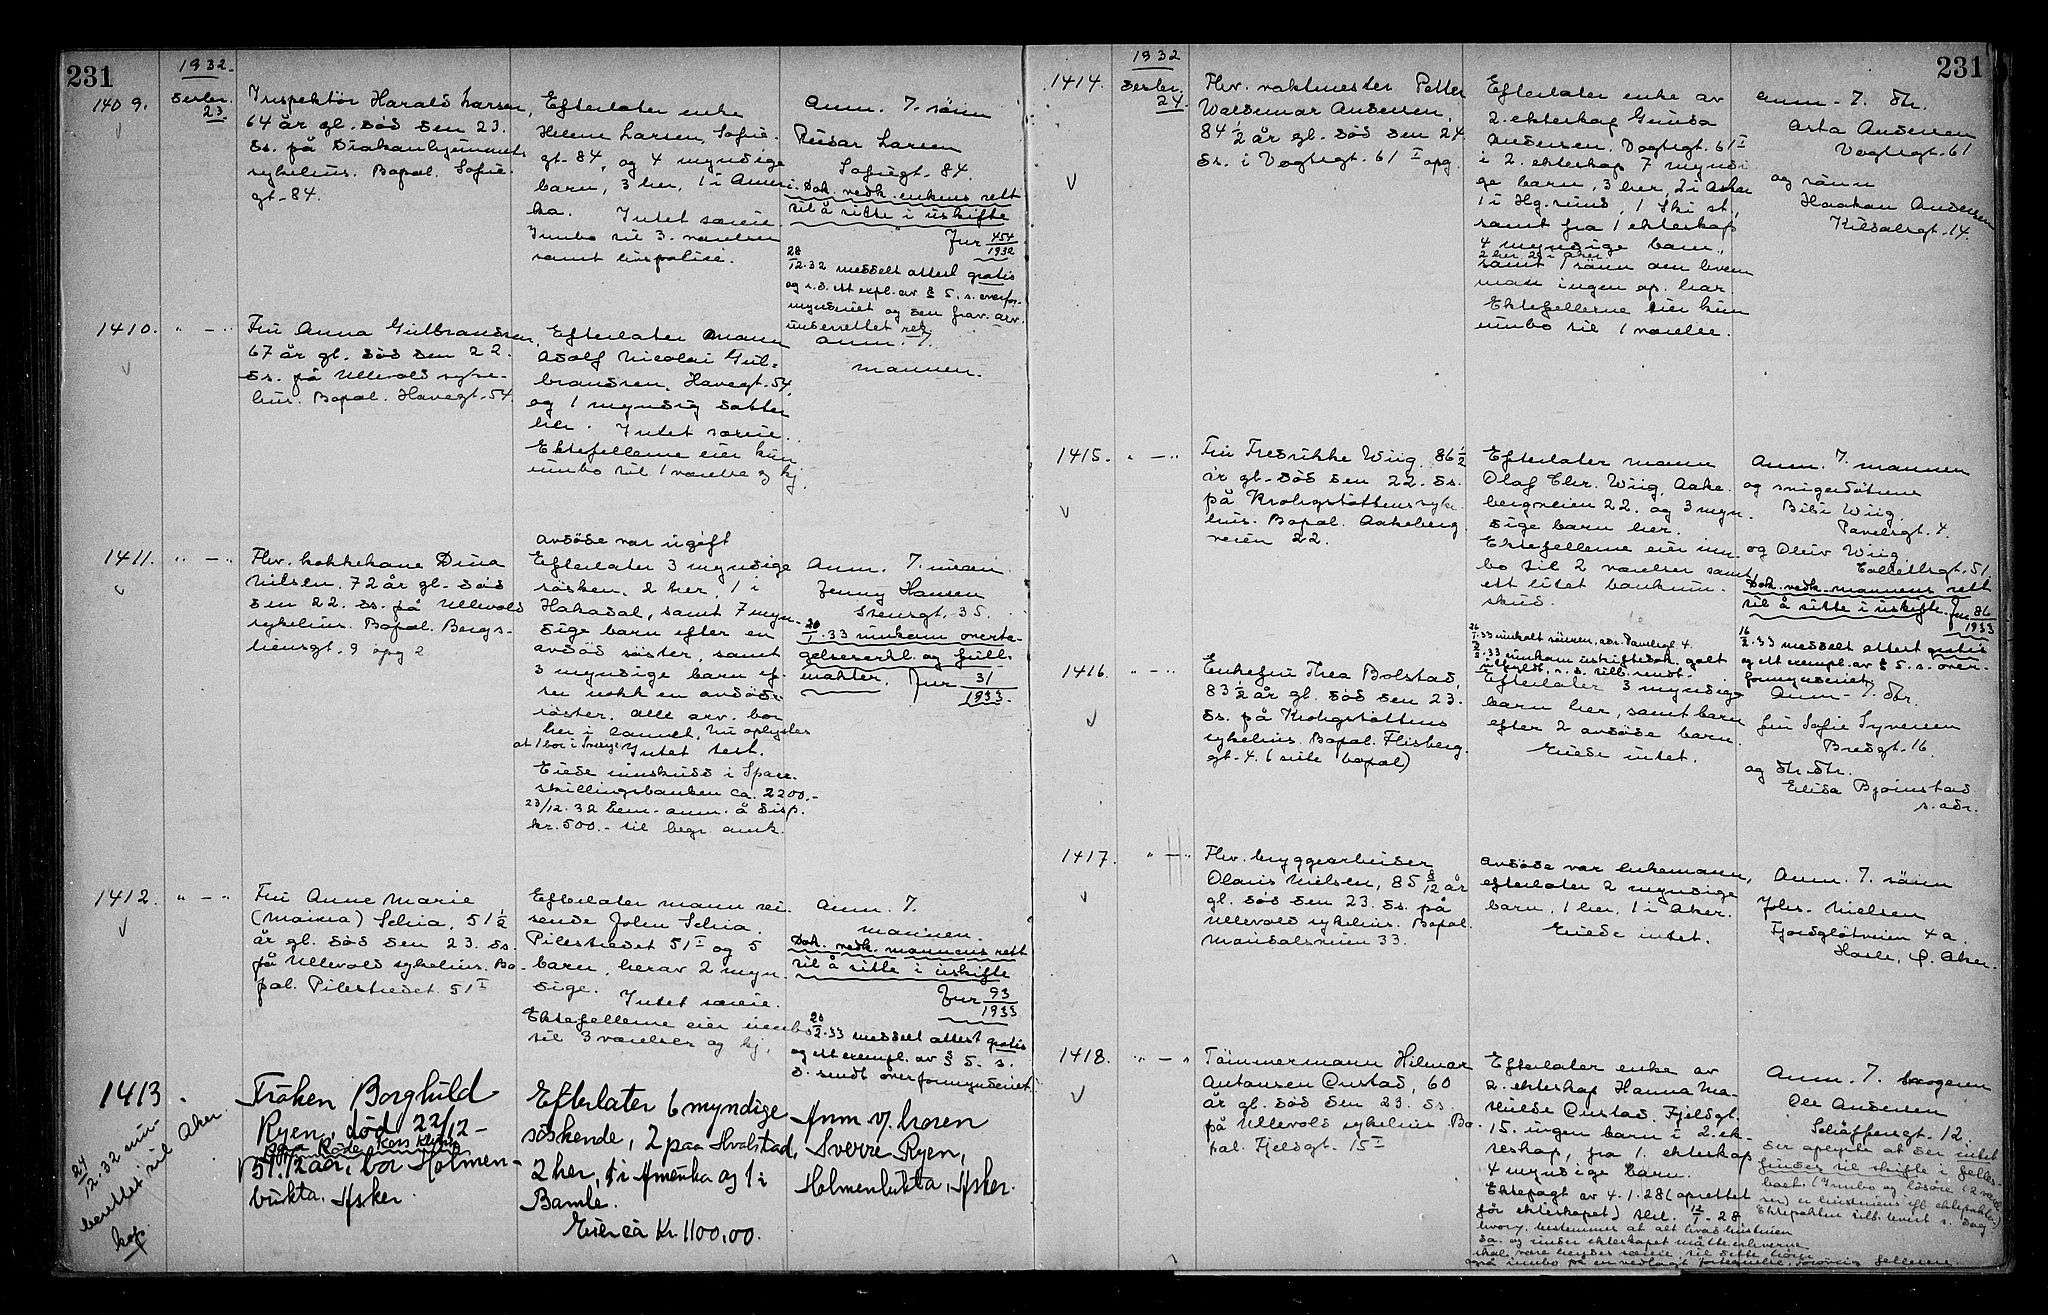 231
1932.
1409.
Desbr.
23
Inspektör Harald Larsen,
64 år gl. död den 23.
ds. på Diakonhjemmets
sykehus. Bopæl. Sofie-
gt. 84.
Efterlater enke
Helene Larsen, Sofie-
gt. 84, og 4 myndige
barn, 3 her, 1 i Ameri-
ka. Intet særeie.
Innbo til 3. værelser
samt livspolice.
Anm. v. sönn
Reidar Larsen
Sofiegt. 84.
Dok. vedk. enkens rett
til å sitte i uskifte
Jnr 454/1932
28/12.32 meddelt attest gratis
og s.d. ett expl. av § 5. s. overfor-
mynderiet og den frav. arv.
underrettet
1410. " — "
Fru Anna Gulbrandsen,
67 år gl. död den 22.
ds. på Ullevold syke-
hus. Bopæl. Havegt. 54.
Efterlater mann
Adolf Nicolai Gul-
brandsen, Havegt. 54,
og 1 myndig datter
her. Intet særeie.
Ektefellerne eier kun
innbo til 1 værelse og kj.
Anm. v.
mannen.
1411. " — "
Fhv. kokkekone Dina
Nilsen, 72 år gl. död
den 22. ds. på Ullevold
sykehus. Bopæl. Bergs-
liensgt. 9 opg 2
Avdöde var ugift
Efterlater 3 myndige
sösken, 2 her, 1 i
Hakadal, samt 7 myn-
dige barn efter en
avdöd söster, samt
3 myndige barn ef-
ter nokk en avdöd
söster. Alle arv. bor
her i landet, nu oplystes
at 1 bor i Sverige. Intet test.
Eiede innskudd i Spare-
skillingsbanken ca. 2200.-
23/12.32 bem. anm. å disp.
kr. 500.- til begr. omk.
Anm. v. niesen
Jenny Hansen
Stensgt. 35.
20/1.33 innkom overta-
gelseserkl. og full-
makter. Jnr 31/1933.
1412. " — "
Fru Anne Marie
(Maima) Schia, 51 1/2
år gl. död den 23. ds.
på Ullevold sykehus. Bo-
pæl. Pilestredet 51 I
Efterlater mann rei-
sende John Schia,
Pilestredet 51 I og 5
barn, herav 2 myn-
dige. Intet særeie.
Ektefellerne eier innbo
til 3 værelser og kj.
Anm. v.
mannen.
Dok. vedk. mannens rett
til å sitte i uskifte
Jnr 93/1933
20/2.33 meddelt attest gratis
og ett exempl. av § 5. s.
d. sendt overformynderiet
1413 -
24/12.32 inn-
berettet til Aker.
Fröken Borghild
Ryen, död 22/12 -
paa Röde Kors Klinik
51 1/2 aar, bor Holmen-
bukta. Asker.
Efterlater 6 myndige
söskende, 2 paa Hvalstad,
2 her, 1 i Amerika og 1 i
Bamle.
Eier ca Kr. 1100,00.
Anm v/ broren
Sverre Ryen,
Holmenbukta, Asker.
231
1932
1414.
Desbr.
24.
Fhv. vaktmester Petter
Waldemar Andersen,
84 1/2 år gl. död den 24
ds. i Vogtsgt. 61 I opg.
Efterlater enke av
2. ekteskap Gunda
Andersen, Vogtsgt. 61 I
i 2. ekteskap 7 myndi-
ge barn, 3 her, 2 i Asker
1 i Hg.sund, 1 Ski st.,
samt fra 1 ekteskap
4 myndige barn,
2 her 2 i Aker
samt 1 sönn om hvem
man ingen op. har.
Ektefellerne eier kun
innbo til 1 værelse.
Anm. v. dtr.
Asta Andersen
Vogtsgt. 61
og sönn
Haakon Andersen
Kildalsgt. 14.
1415. " — "
Fru Fredrikke Wiig, 86 1/2
år gl. död den 22. ds.
på Krohgstöttens syke-
hus. Bopæl. Aakeberg-
veien 22.
Efterlater mann
Olaf Chr. Wiig, Aake-
bergveien 22. og 3 myn-
dige barn her.
Ektefellerne eier inn-
bo til 2 værelser samt
ett litet bankinn-
skud.
Anm. v. mannen
og svigerdötrene
Bibi Wiig,
Pavelsgt. 4.
og Oluv Wiig,
Dok. vedk. mannens rett
til å sitte i uskifte. Jnr 86/1933
16/2.33 meddelt attest gratis
og ett exempl. av § 5. s. over-
formynderiet
1416. " — "
Enkefru Thea Bolstad,
83 1/2 år gl. död den 23.
ds. på Krohgstöttens
sykehus. Bopæl. Flisberg-
gt. 4. (siste bopæl)
Efterlater 3 myndige
barn her, samt barn
efter 2 avdöde barn.
Eiede intet.
Anm. v. dtr.
fru Sofie Syvensen
Bredgt. 16.
og dtr. dtr.
Elida Bjørnstad
s. adr.
1417. " — "
Fhv. bryggearbeider
Olaus Nielsen, 85 8/12 år
gl. död den 23. ds. på
Ullevold sykehus. Bopæl.
Maridalsveien 33.
Avdöde var enkemann,
efterlater 2 myndige
barn, 1 her, 1 i Aker.
Eiede intet.
Anm. v. sönn
Johs. Nielsen
Fjordgløtveien 4a.
Hasle, Ø. Aker.
1418. " — "
Tömmermann Hilmar
Antonsen Onstad, 60
år gl. död den 23. ds.
på Ullevold sykehus Bo-
pæl. Fjeldgt. 15 I
Efterlater enke av
2. ekteskap Hanna Ma-
thilde Onstad, Fjeldgt.
15. ingen barn i 2. ek-
teskap, fra 1. ekteskap
4 myndige barn.
Ektepagt av 4.1.28 (oprettet
för ekteskapet)
hvorv. bestemmer at alt hvad hustruen
da og under ekteskapet måtte erhverve
skal være hendes særeie,
også innbo på en vedlagt fortegnelse,
Anm. v. svogeren
Ole Andersen
Schöffersgt. 12.
der oplyste at der intet
finder til skifte i felles-
boet. (Innbo og lösöre (2 værel-
ser) er hustruens efter ektepakten)